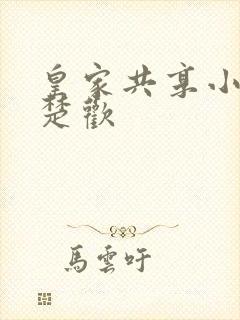 皇家共享小
楚歡
馬雲吁